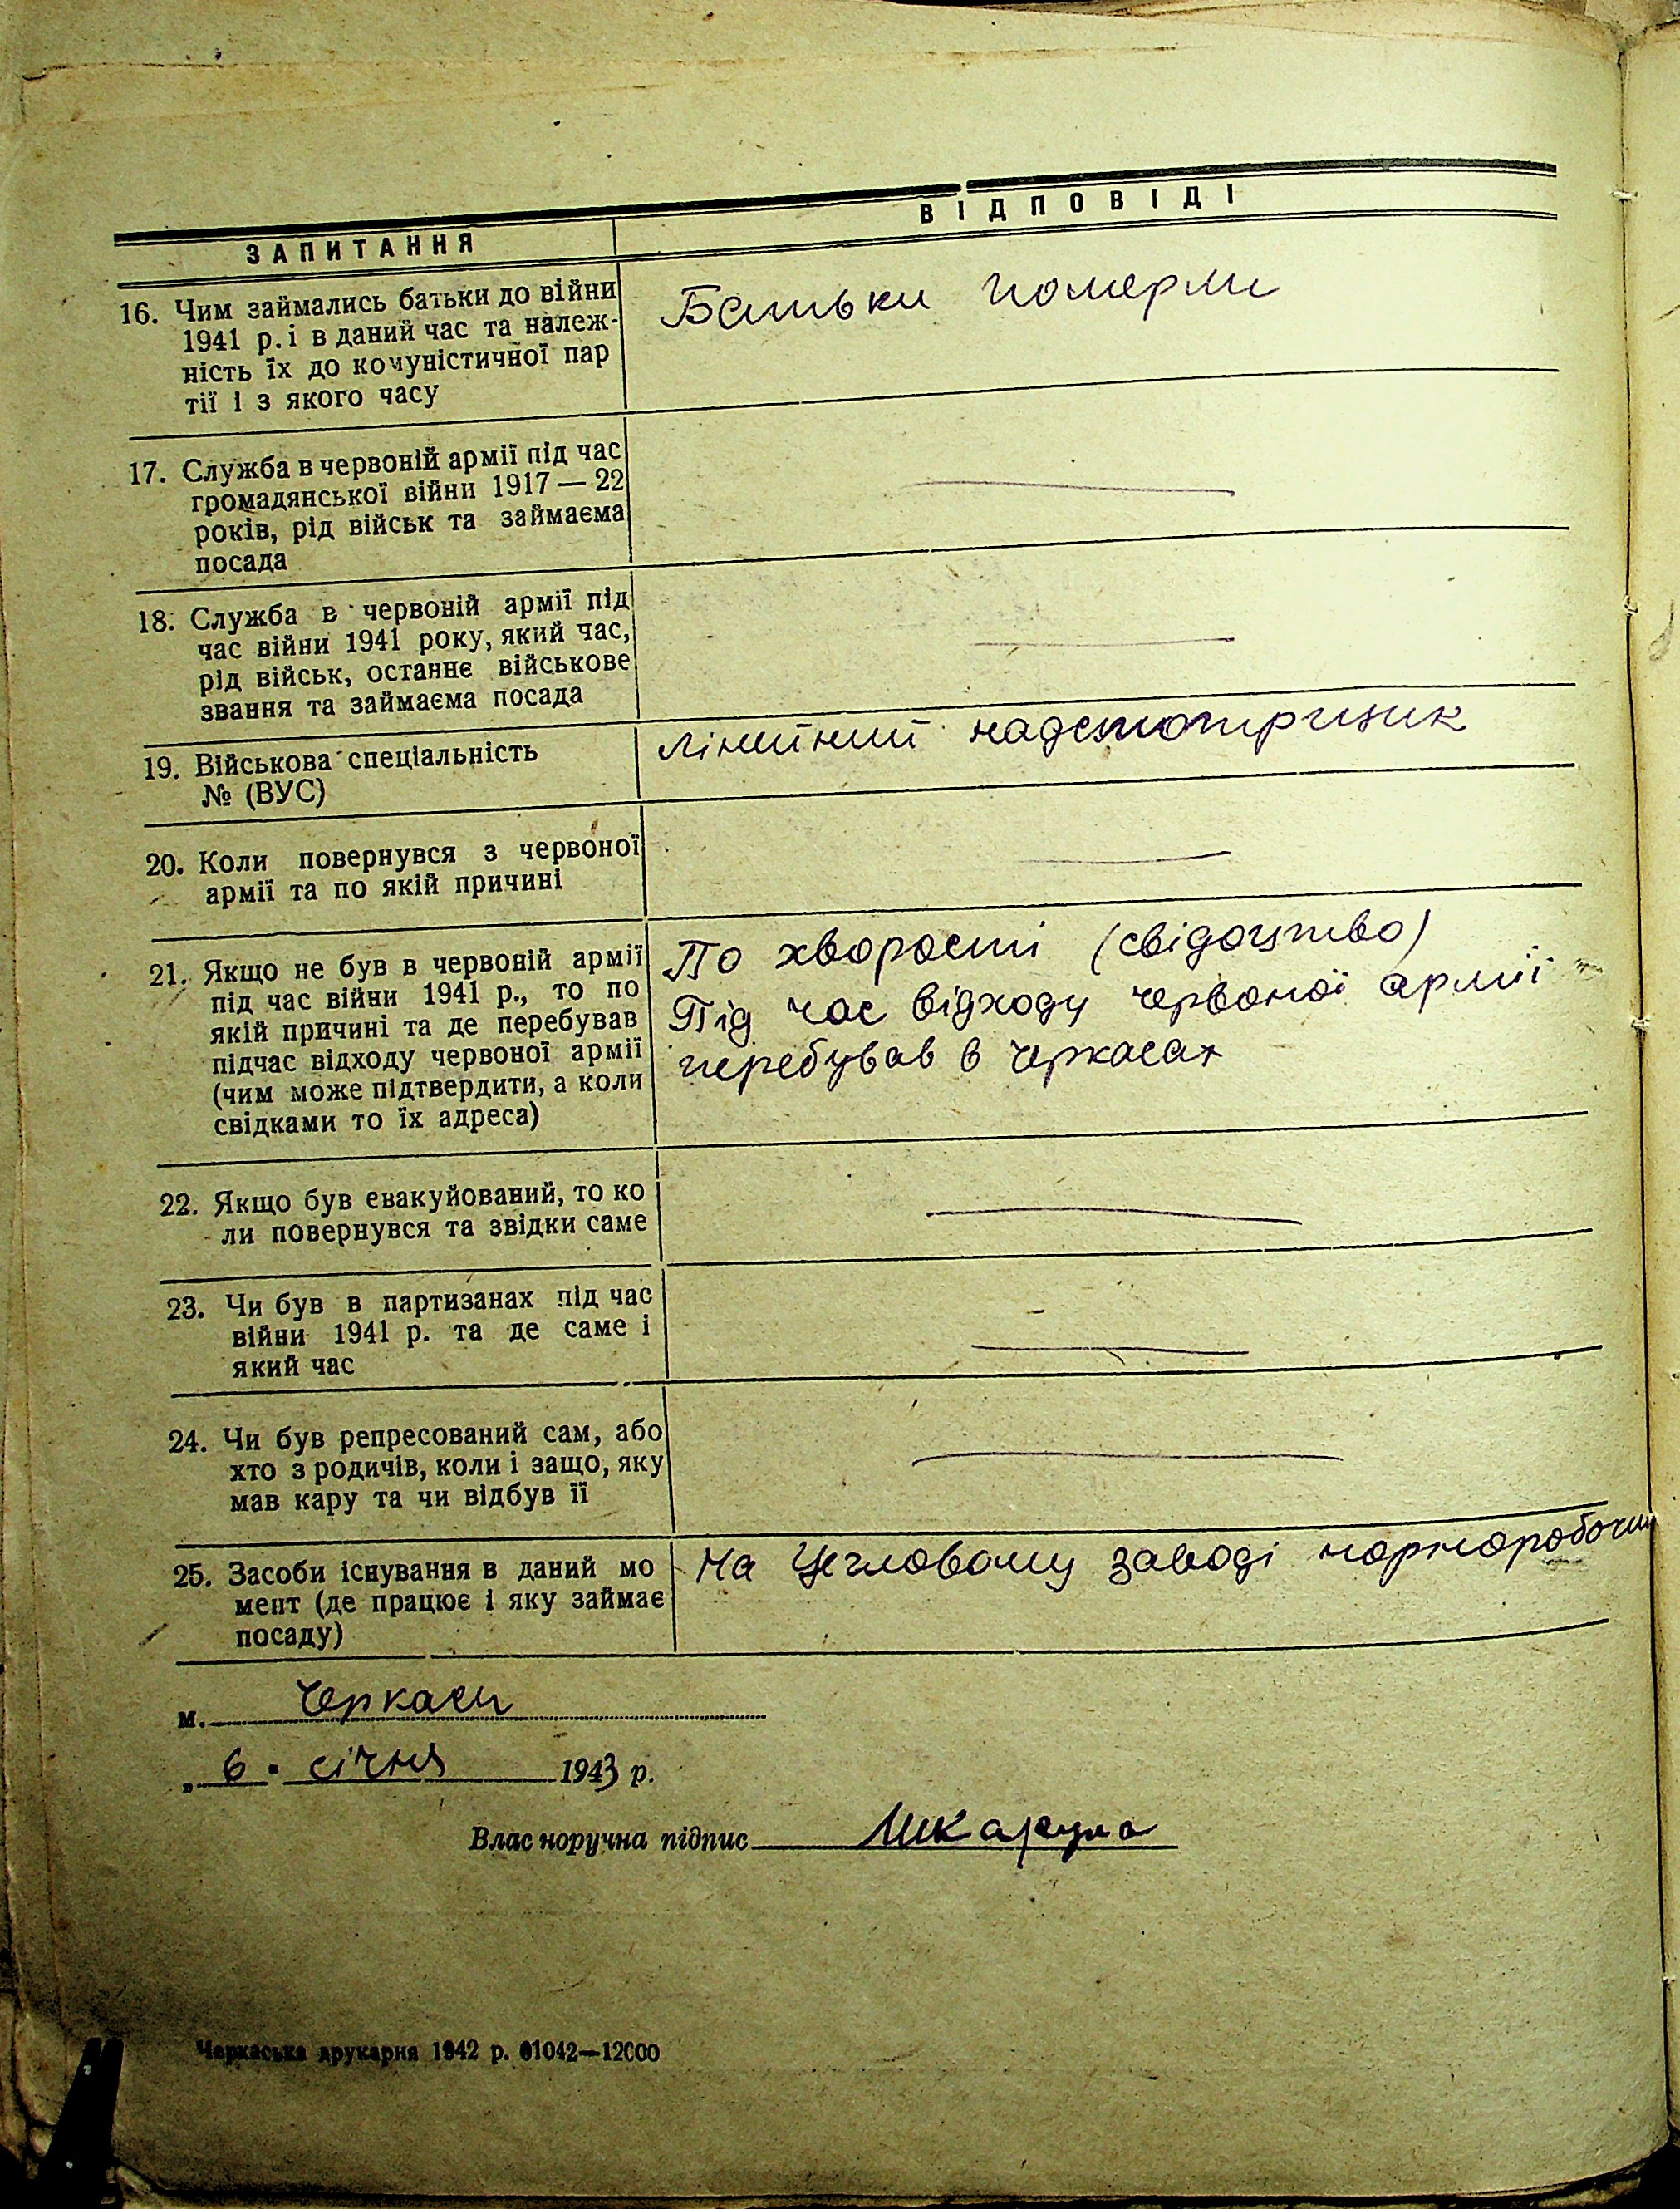 ЗАПИТАННЯ
ВІДПОВІДІ
16. Чим займались батьки до війни
1941 р. і в даний час та належ-
ність їх до комуністичної пар
тії і з якого часу
Батьки померли
17. Служба в червоній армії під час
громадянської війни 1917 — 22
років, рід військ та займаєма
посада
18. Служба в червоній армії під
час війни 1941 року, який час,
рід військ, останнє військове
звання та займаєма посада
19. Військова спеціальність
№ (ВУС)
лінійний
20. Коли повернувся з червоної
армії та по якій причині
21. Якщо не був в червоній армії
під час війни 1941 р., то по
якій причині та де перебував
підчас відходу червоної армії
(чим може підтвердити, а коли
свідками то їх адреса)
По хворости (свідоцтво)
Під час відходу червоної армії
перебував в Черкасах
22. Якщо був евакуйований, то ко
ли повернувся та звідки саме
23. Чи був в партизанах під час
війни 1941 р. та де саме і
який час
24. Чи був репресований сам, або
хто з родичів, коли і защо, яку
мав кару та чи відбув її
25. Засоби існування в даний мо
мент (де працює і яку займає
посаду)
На Цегловому заводі чорноробочим
м. Черкаси
„ 6 " січня 1943 р.
Власноручна підпис
Черкаська друкарня 1942 р. 01042—12000